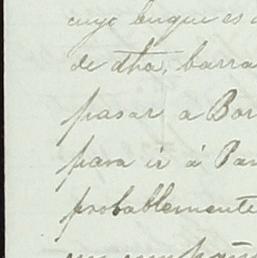 cuyo buque es
de dha, barra
pasar a Bor
para ir á Par
probablemente